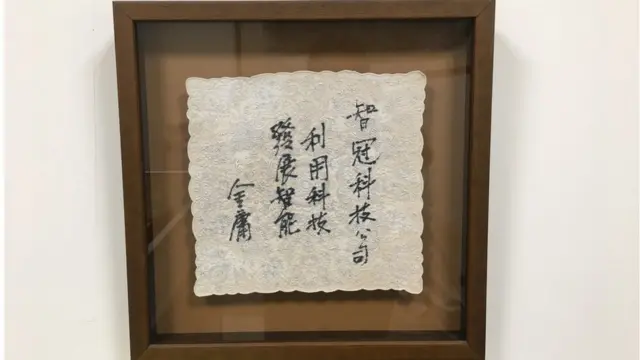 智冠科技公司
利用科技
發展智能
金庸